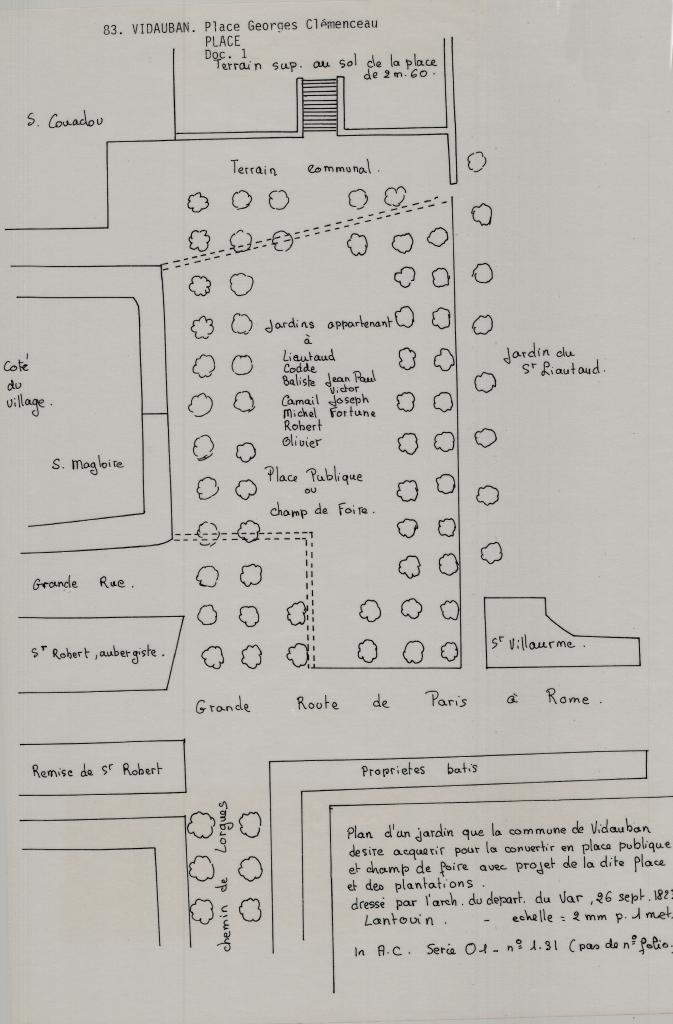 83. VIDAUBAN. Place Georges Clémenceau
PLACE
Doc. 1
Terrain sup. au sol de la place
de 2 m. 60.
S. Couadou
Terrain communal.
Jardins appartenant
à
Lieutaud
Codde
Baliste Jean Paul
Victor
Camail Joseph
Michel Fortune
Robert
Olivier
Coté
du
village.
Jardin du
Sr Liautaud.
S. Magloire
Place Publique
ou
champ de Foire.
Grande Rue.
Sr Robert, aubergiste.
Sr Villaurme.
Grande Route de Paris à Rome.
Remise de Sr Robert
Proprietes batis
chemin de Lorgues
Plan d'un jardin que la commune de Vidauban
desire acquerir pour la convertir en place publique
et champ de foire avec projet de la dite Place
et des plantations.
dressé par l'arch. du depart. du Var, 26 sept.
Lantouin. - echelle = 2 mm p. 1 met.
In A.C. Serie O1 - n° 1.31 (pas de n° folio